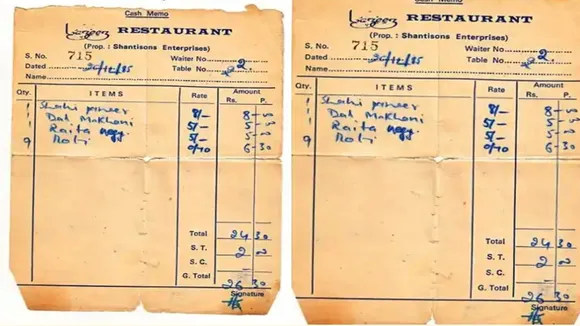 Cash Memo
Lazeez RESTAURANT
(Prop. : Shantisons Enterprises)
S. No. 715 Waiter No. 2
Dated 20/12/85 Table No.
Name
Qty. ITEMS Rate Amount
Rs. P.
1 Shahi paneer 8/- 8 -
1 Dal Makhani 5/- 5 -
1 Raita 5/- 5 -
9 Roti 0/70 6 30
Total 24 30
S. T. 2
S. C.
G. Total 26 30
Signature
Cash Memo
Lazeez RESTAURANT
(Prop. : Shantisons Enterprises)
S. No. 715 Waiter No. 2
Dated 20/12/85 Table No.
Name
Qty. ITEMS Rate Amount
Rs. P.
1 Shahi paneer 8/- 8 -
1 Dal Makhani 5/- 5 -
1 Raita 5/- 5 -
9 Roti 0/70 6 30
Total 24 30
S. T. 2
S. C.
G. Total 26 30
Signature